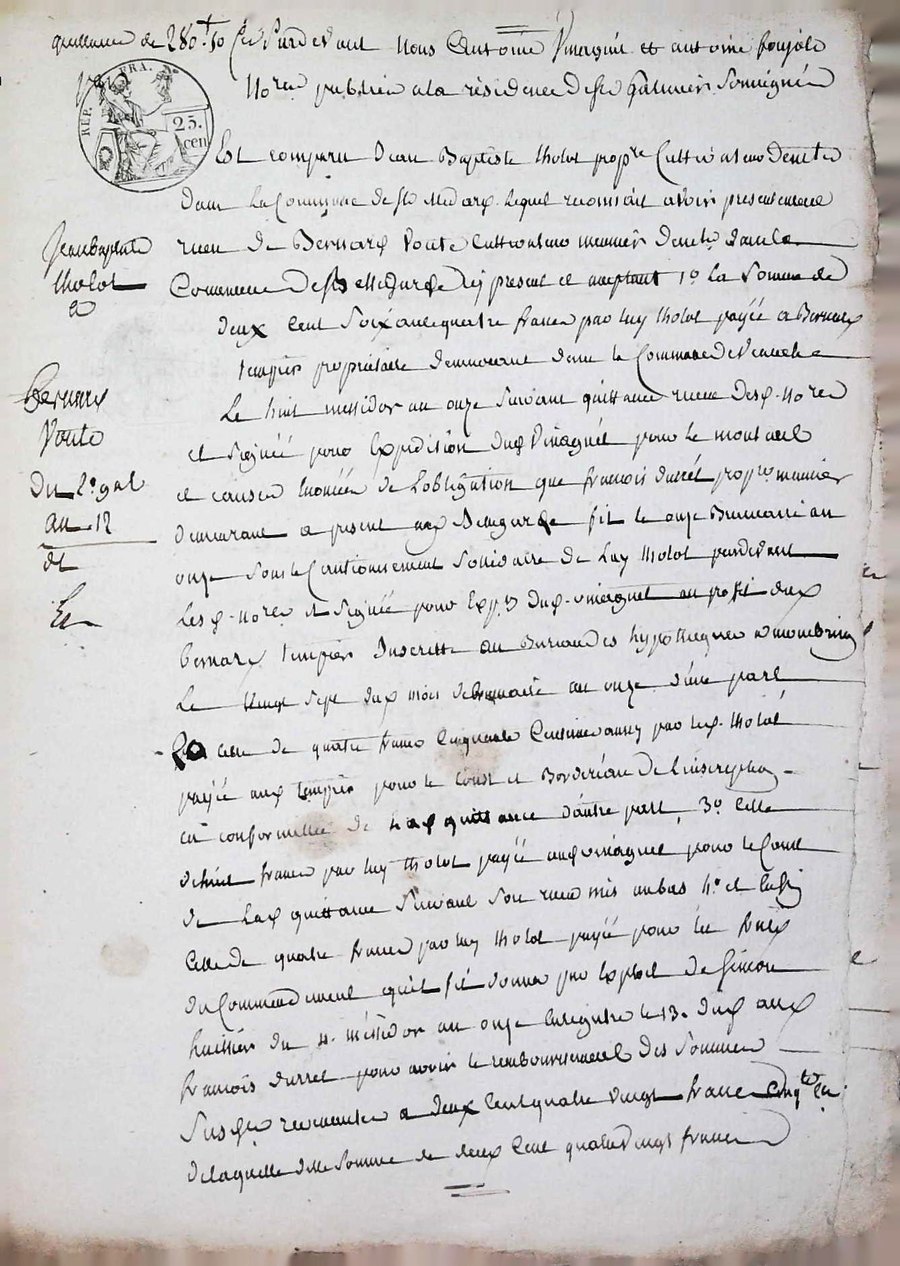 quittance de 280.ᵗ 50 Cᵉˢ Pardevant Nous Antoine Vinaignet et antoine poujol
Noʳᵉˢ publics a la résidence de sᵗ galmier Soussignés
REP. FRA.
25. cen
Est comparu Jean Baptiste tholot propʳᵉ Cultivateur
dans La Commune de sᵗ Medard. Lequel reconnait avoir presentement
reçu de Bernard Voute Cultivateur meunier dans la
Commune de sᵗ Medard icy present et acceptant 1º la Somme de
deux Cent Soixante quatre francs par luy tholot payée a Bernard
tempier propriétaire demeurant dans la Commune de
Le huit messidor an onze Suivant quittance reçue desd. Noʳᵉˢ
et Signée pour Expédition dud. Vinaignet pour le montant
et causes Enoncées de Lobligation que francois durret propʳᵉ meunier
demeurant a present fit le onze Brumaire an
onze Sous le Cautionnement Solidaire de Luy tholot pardevant
Lesd. Noʳᵉˢ et Signée pour Expᵒⁿ dud. vinaignet au profit dud.
bernard tempier Inscritte au Bureau des hypotheques a montbrison
Le Vingt Sept dud. mois de brumaire an onze d'une part
celle de quatre francs Cinquante Centimes aussy par led. tholot
payée aud. tempier pour le Coust et Bordereau de l'inscription
en conformité de Lad. quittance d'autre part, 3º Celle
de huit francs par luy tholot payée aud. vinaignet pour le Coust
de Lad. quittance Suivant Son reçu mis au bas 4º et Enfin
Celle de quatre francs par luy tholot payée pour les frais
du Commandement qu'il fit donner par Exploit de Simon
huissier du 4. messidor an onze Enregistré le 13. dud. aud.
francois durret pour avoir le remboursement des Sommes
Susd. revenantes a deux Cent quatre vingt francs Cinqᵗᵉ Cᵉˢ
de laquelle ditte Somme de deux Cent quatre vingt francs
Jean Baptiste
tholot
a
Bernard
Voute
Du 2.º gal
an 12